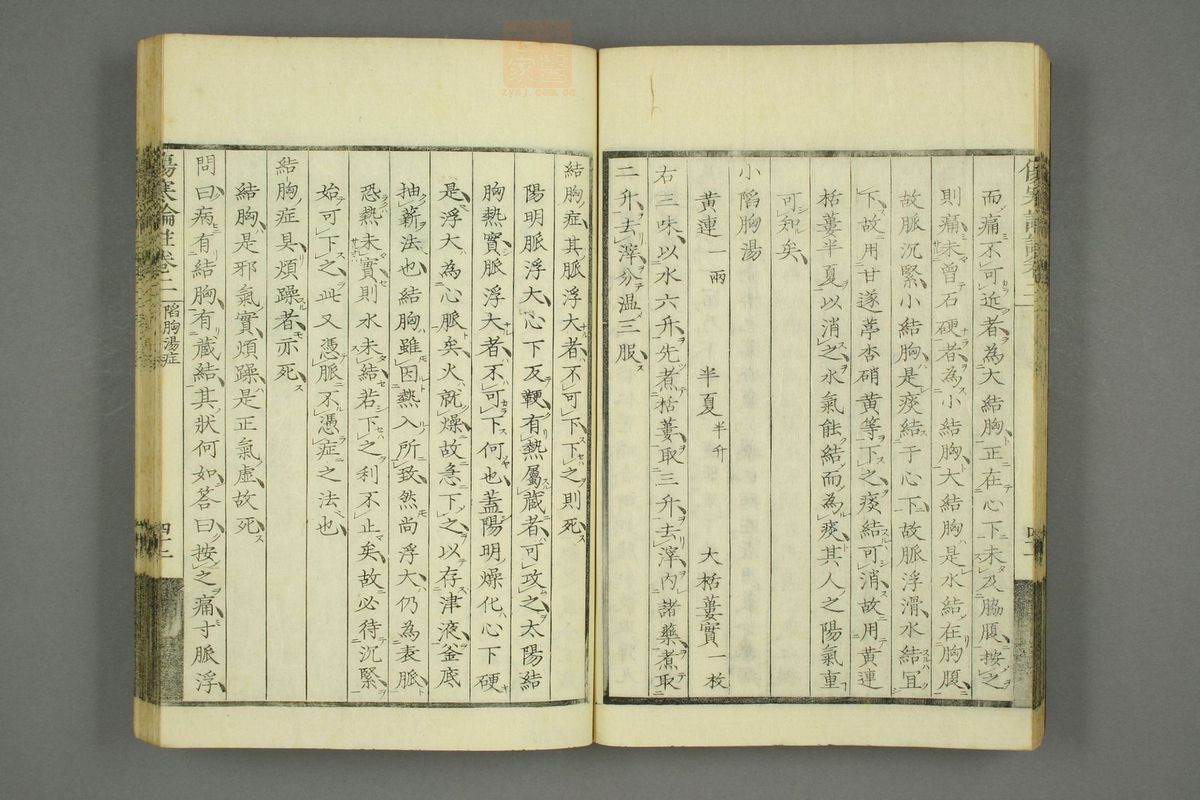 而痛不可近者為大結胸正在心下未及脇腹按之
則痛未曾石硬者為小結胸大結胸是水結在胸腹
故脈沉緊小結胸是痰結于心下故脈浮滑水結宜
下故用甘遂葶杏硝黃等下之痰結可消故用黃連
栝蔞半夏以消之水氣能結而為痰其人之陽氣重
可知矣
小陷胸湯
黃連一兩 半夏半升 大栝蔞實一枚
右三味以水六升先煮栝蔞取三升去滓內諸藥煮取
二升去滓分温三服
結胸症其脈浮大者不可下下之則死
陽明脈浮大心下反鞕有熱屬藏者可攻之太陽結
胸熱實脈浮大者不可下何也蓋陽明燥化心下硬
是浮大為心脈矣火就燥故急下之以存津液釜底
抽薪法也結胸雖因熱入所致然尚浮大仍為表脈
恐熱未實則水未結若下之利不止矣故必待沉緊
始可下之此又憑脈不憑症之法也
結胸症具煩躁者亦死
結胸是邪氣實煩躁是正氣虛故死
問曰病有結胸有藏結其狀何如答曰按之痛寸脈浮
傷寒論註卷二 陷胸湯症 四十二